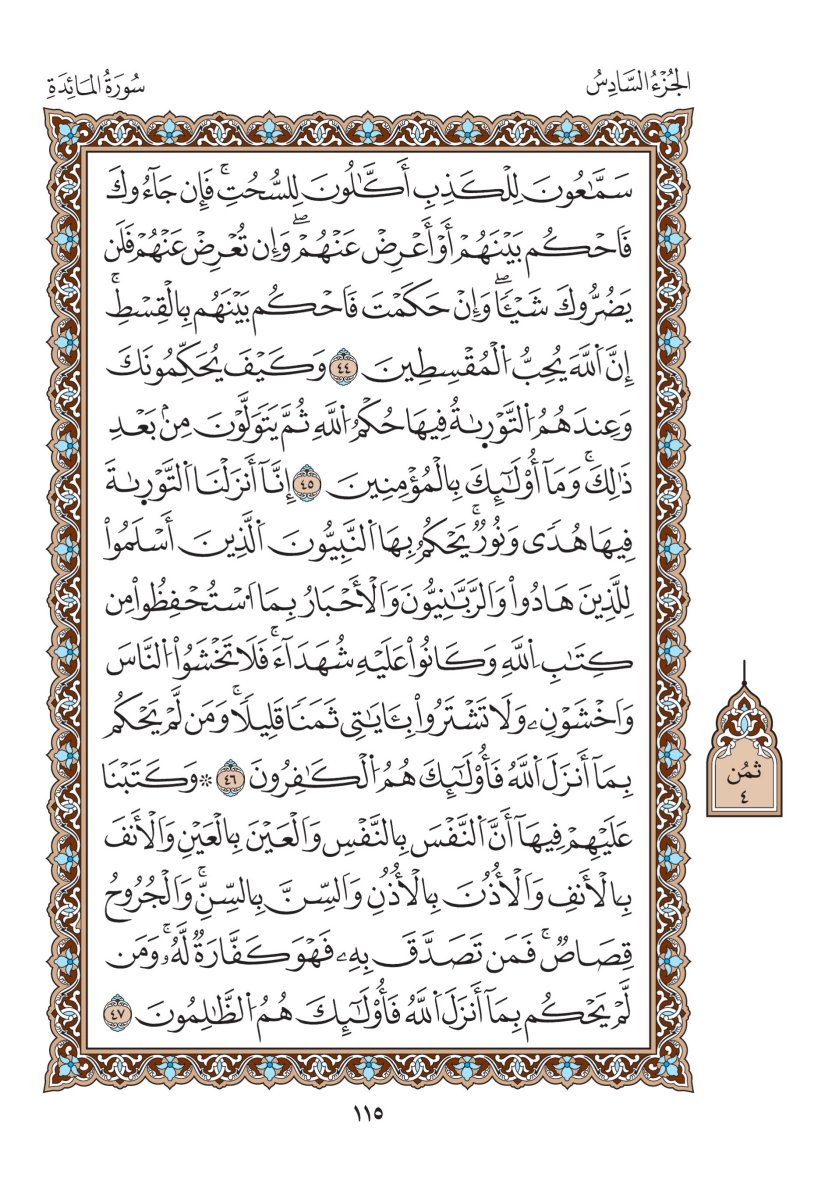 الجُزْءُ السَّادِسُ
سُورَةُ المَائِدَةِ
سَمَّٰعُونَ لِلْكَذِبِ أَكَّٰلُونَ لِلسُّحُتِۚ فَإِن جَآءُوكَ
فَاحْكُم بَيْنَهُمْ أَوْ أَعْرِضْ عَنْهُمْۖ وَإِن تُعْرِضْ عَنْهُمْ فَلَن
يَضُرُّوكَ شَيْـًٔاۖ وَإِنْ حَكَمْتَ فَاحْكُم بَيْنَهُم بِالْقِسْطِۚ
إِنَّ اَ۬للَّهَ يُحِبُّ اُ۬لْمُقْسِطِينَ ٤٤ وَكَيْفَ يُحَكِّمُونَكَ
وَعِندَهُمُ اُ۬لتَّوْر۪ىٰةُ فِيهَا حُكْمُ اُ۬للَّهِ ثُمَّ يَتَوَلَّوْنَ مِنۢ بَعْدِ
ذَٰلِكَۚ وَمَآ أُوْلَٰٓئِكَ بِالْمُؤْمِنِينَ ٤٥ إِنَّآ أَنزَلْنَا اَ۬لتَّوْر۪ىٰةَ
فِيهَا هُدًى وَنُورٌۚ يَحْكُمُ بِهَا اَ۬لنَّبِيُّونَ اَ۬لَّذِينَ أَسْلَمُواْ
لِلَّذِينَ هَادُواْ وَالرَّبَّٰنِيُّونَ وَالْأَحْبَارُ بِمَا اَ۟سْتُحْفِظُواْ مِن
كِتَٰبِ اِ۬للَّهِ وَكَانُواْ عَلَيْهِ شُهَدَآءَۚ فَلَا تَخْشَوُاْ اُ۬لنَّاسَ
وَاخْشَوْنِۦ وَلَا تَشْتَرُواْ بِـَٔايَٰتِى ثَمَنًا قَلِيلًاۚ وَمَن لَّمْ يَحْكُم
بِمَآ أَنزَلَ اَ۬للَّهُ فَأُوْلَٰٓئِكَ هُمُ اُ۬لْكَٰفِرُونَ ٤٦ ۞وَكَتَبْنَا
عَلَيْهِمْ فِيهَآ أَنَّ اَ۬لنَّفْسَ بِالنَّفْسِ وَالْعَيْنَ بِالْعَيْنِ وَالْأَنفَ
بِالْأَنفِ وَالْأُذُنَ بِالْأُذُنِ وَالسِّنَّ بِالسِّنِّۚ وَالْجُرُوحُ
قِصَاصٌۚ فَمَن تَصَدَّقَ بِهِۦ فَهْوَ كَفَّارَةٌ لَّهُۥۚ وَمَن
لَّمْ يَحْكُم بِمَآ أَنزَلَ اَ۬للَّهُ فَأُوْلَٰٓئِكَ هُمُ اُ۬لظَّٰلِمُونَ ٤٧
ثمُن
٤
١١٥